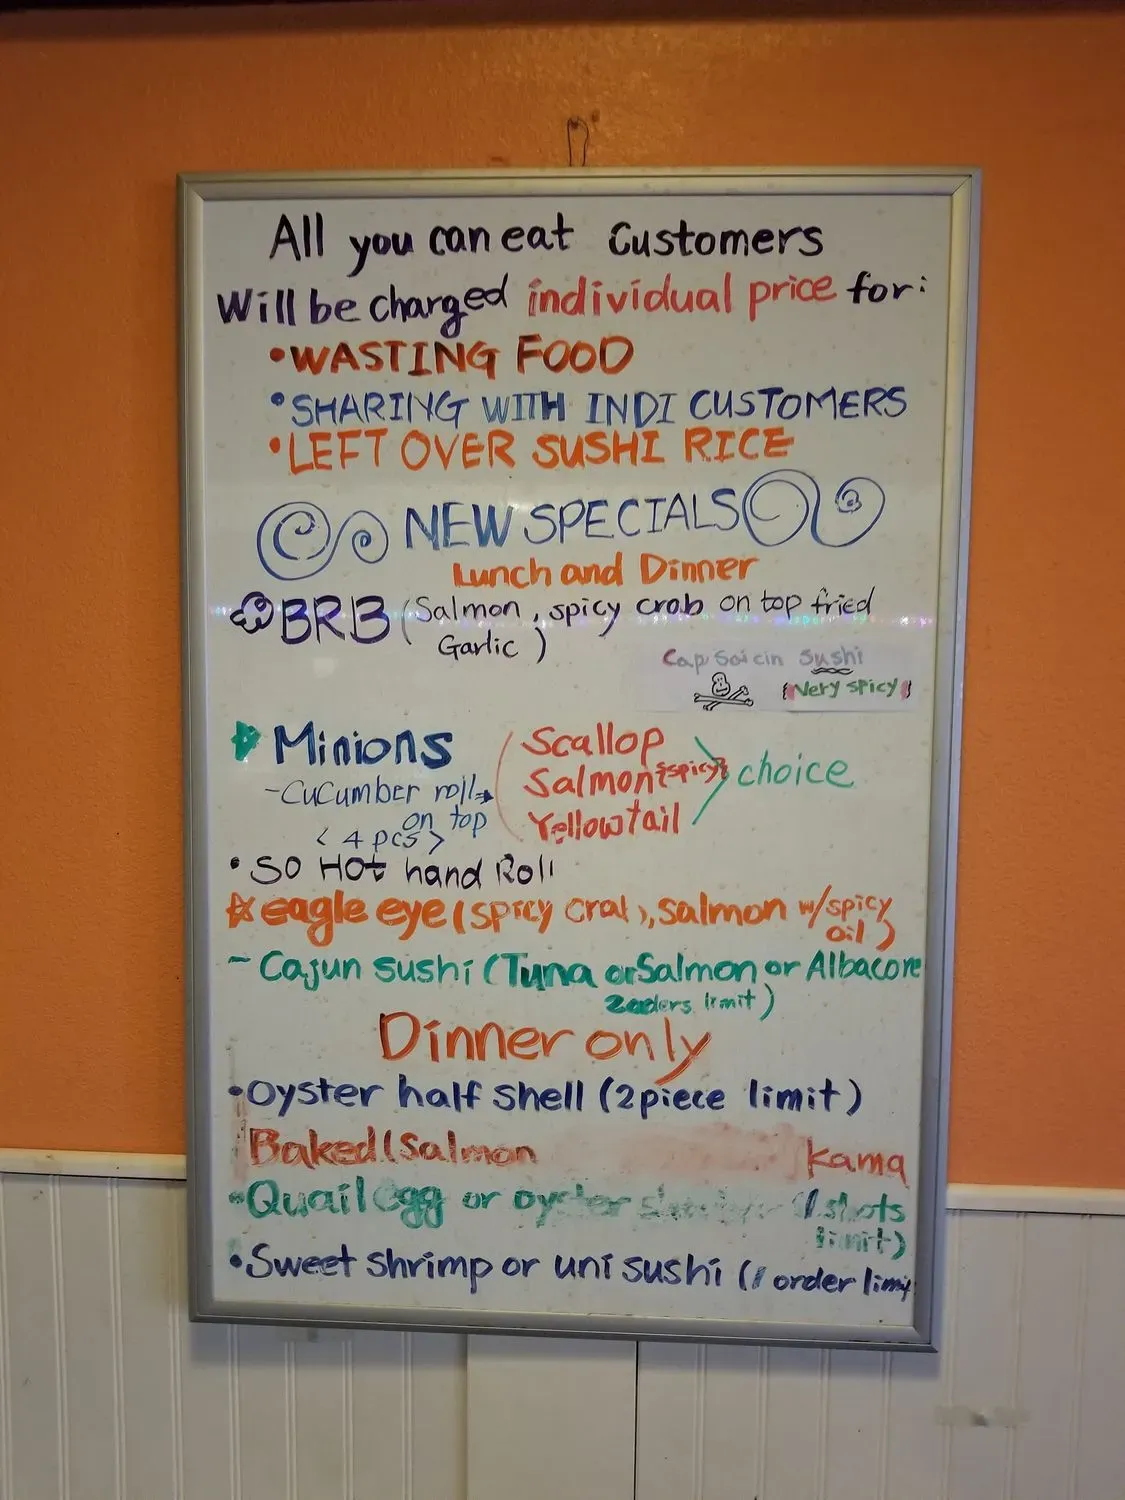 All you can eat Customers
Will be charged individual price for:
•WASTING FOOD
•SHARING WITH INDI CUSTOMERS
•LEFT OVER SUSHI RICE
NEW SPECIALS
Lunch and Dinner
BRB (Salmon, spicy crab on top fried
Garlic)
Capsaicin Sushi
Very spicy
Minions
-Cucumber roll
on top
< 4 pcs >
Scallop
Salmon (spicy)
Yellowtail
choice
•SO HOt hand Roll
eagle eye (spicy crab), salmon w/spicy
oil)
- Cajun sushi (Tuna or Salmon or Albacore
2 orders limit)
Dinner only
•Oyster half shell (2 piece limit)
Baked (Salmon kama
•Quail egg or oyster shots
limit)
•Sweet shrimp or uni sushi (1 order limit